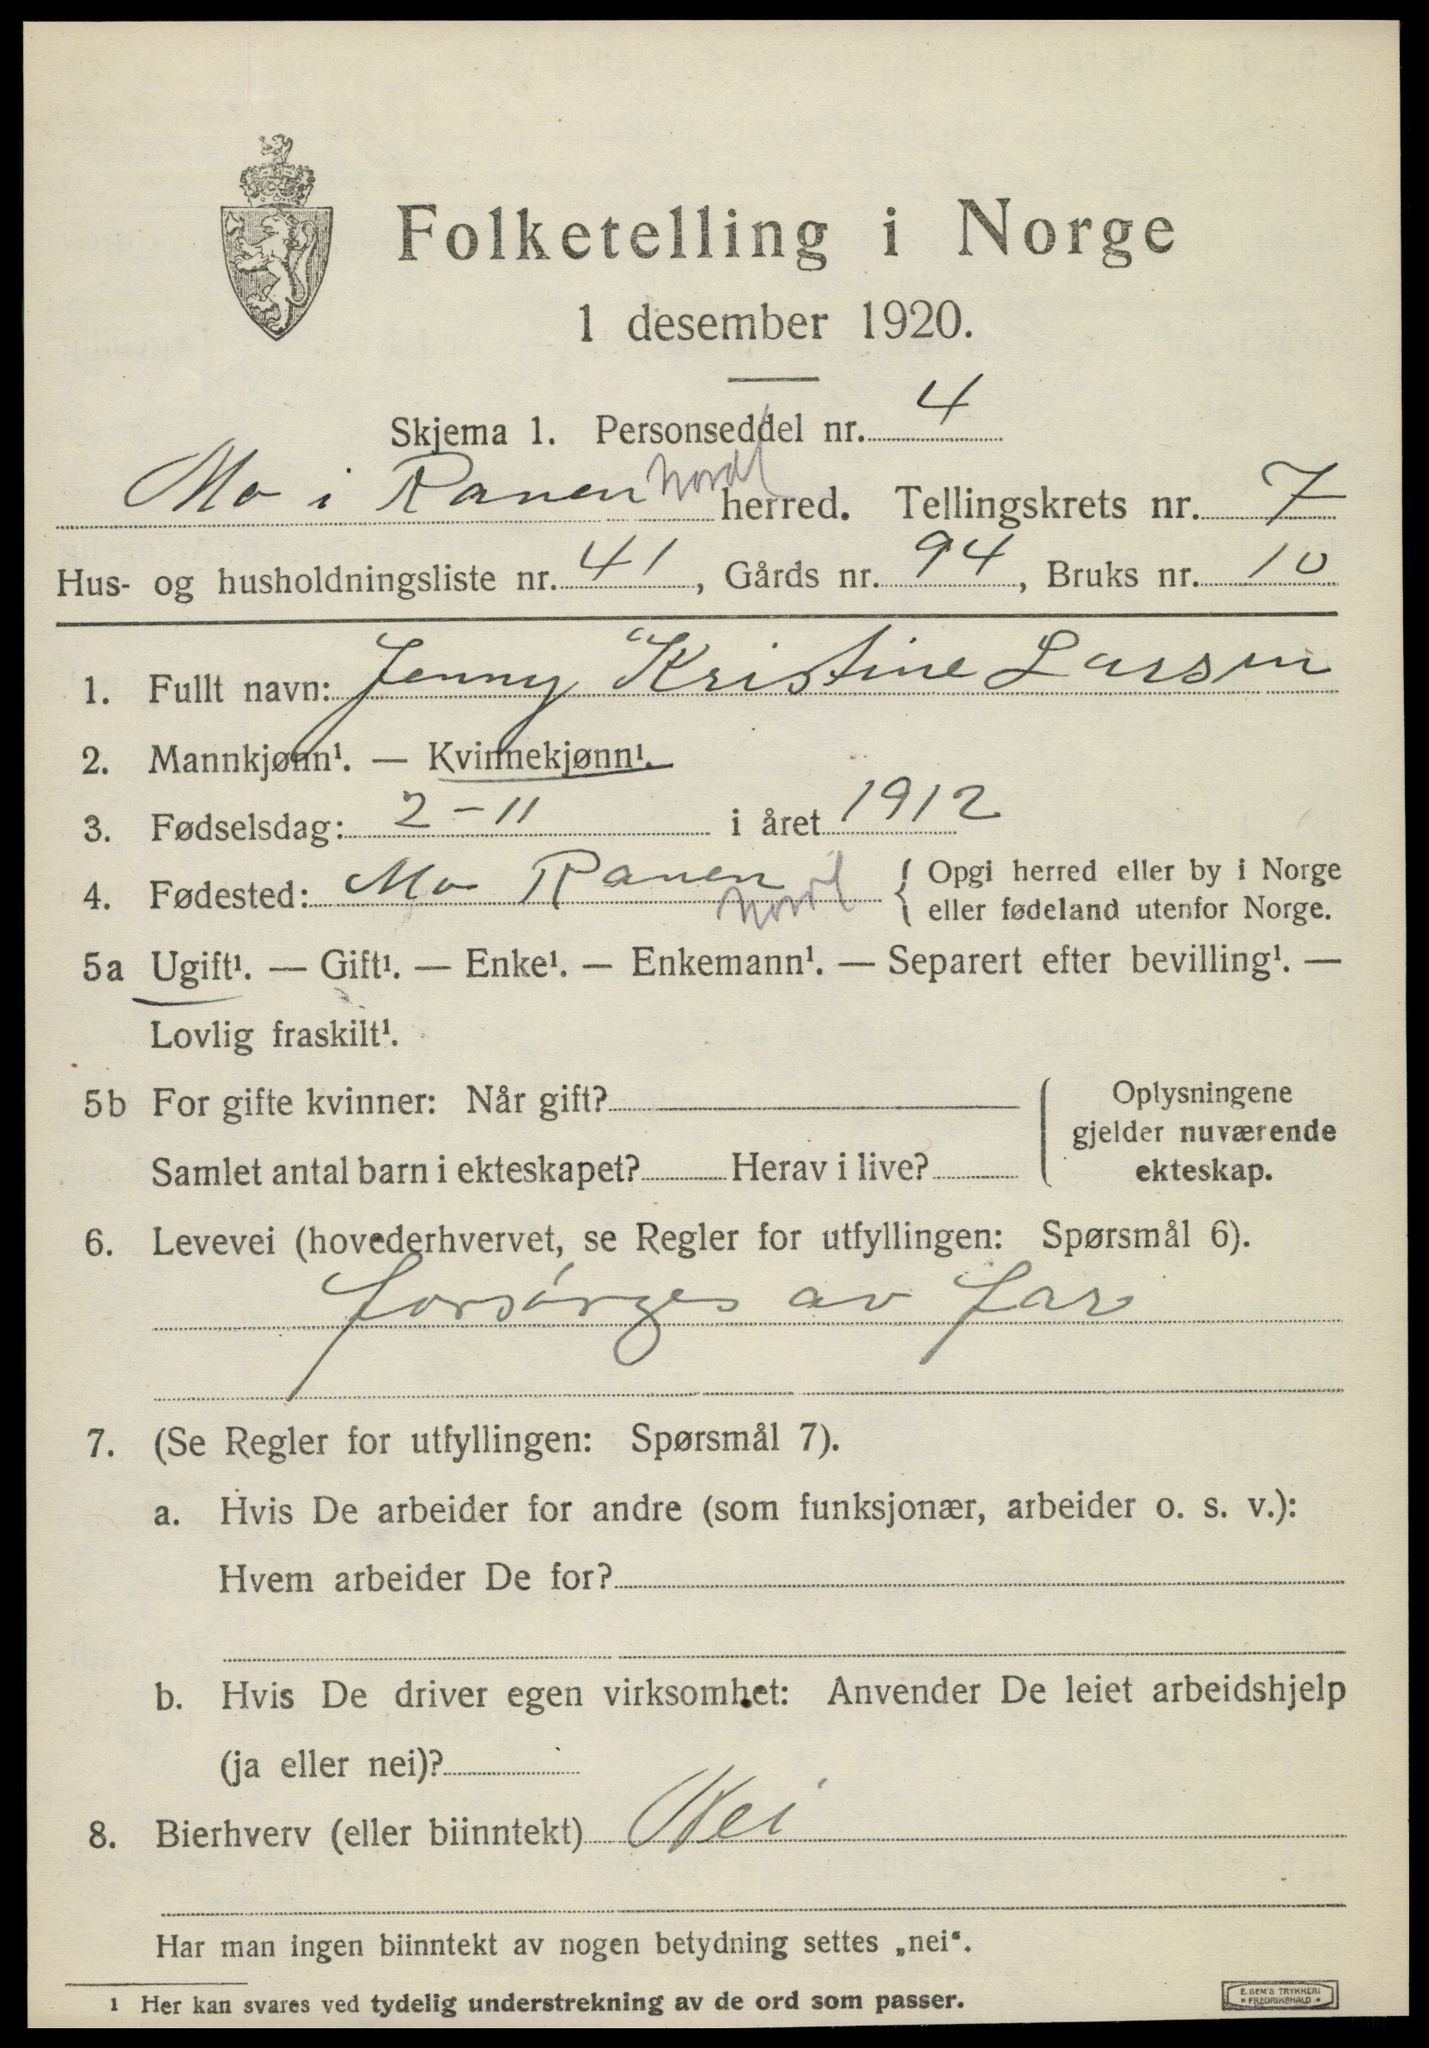 Folketelling i Norge
1 desember 1920.
Skjema 1. Personseddel nr. 4
Mo i Ranen Nordl herred. Tellingskrets nr. 7
Hus- og husholdningsliste nr. 41, Gårds nr. 94, Bruks nr. 10
1. Fullt navn: Jenny Kristine Larsen
2. Mannkjønn¹. — Kvinnekjønn¹.
3. Fødselsdag: 2-11 i året 1912
4. Fødested: Mo Ranen Nordl { Opgi herred eller by i Norge
eller fødeland utenfor Norge.
5a Ugift¹. — Gift¹. — Enke¹. — Enkemann¹. — Separert efter bevilling¹. —
Lovlig fraskilt¹.
5b For gifte kvinner: Når gift? Oplysningene
gjelder nuværende
Samlet antal barn i ekteskapet? Herav i live? ekteskap.
6. Levevei (hovederhvervet, se Regler for utfyllingen: Spørsmål 6).
forsørges av far
7. (Se Regler for utfyllingen: Spørsmål 7).
a. Hvis De arbeider for andre (som funksjonær, arbeider o. s. v.):
Hvem arbeider De for?
b. Hvis De driver egen virksomhet: Anvender De leiet arbeidshjelp
(ja eller nei)?
8. Bierhverv (eller biinntekt) Nei
Har man ingen biinntekt av nogen betydning settes „nei“.
1 Her kan svares ved tydelig understrekning av de ord som passer.
E. SEM'S TRYKKERI
* FREDRIKSHALD *